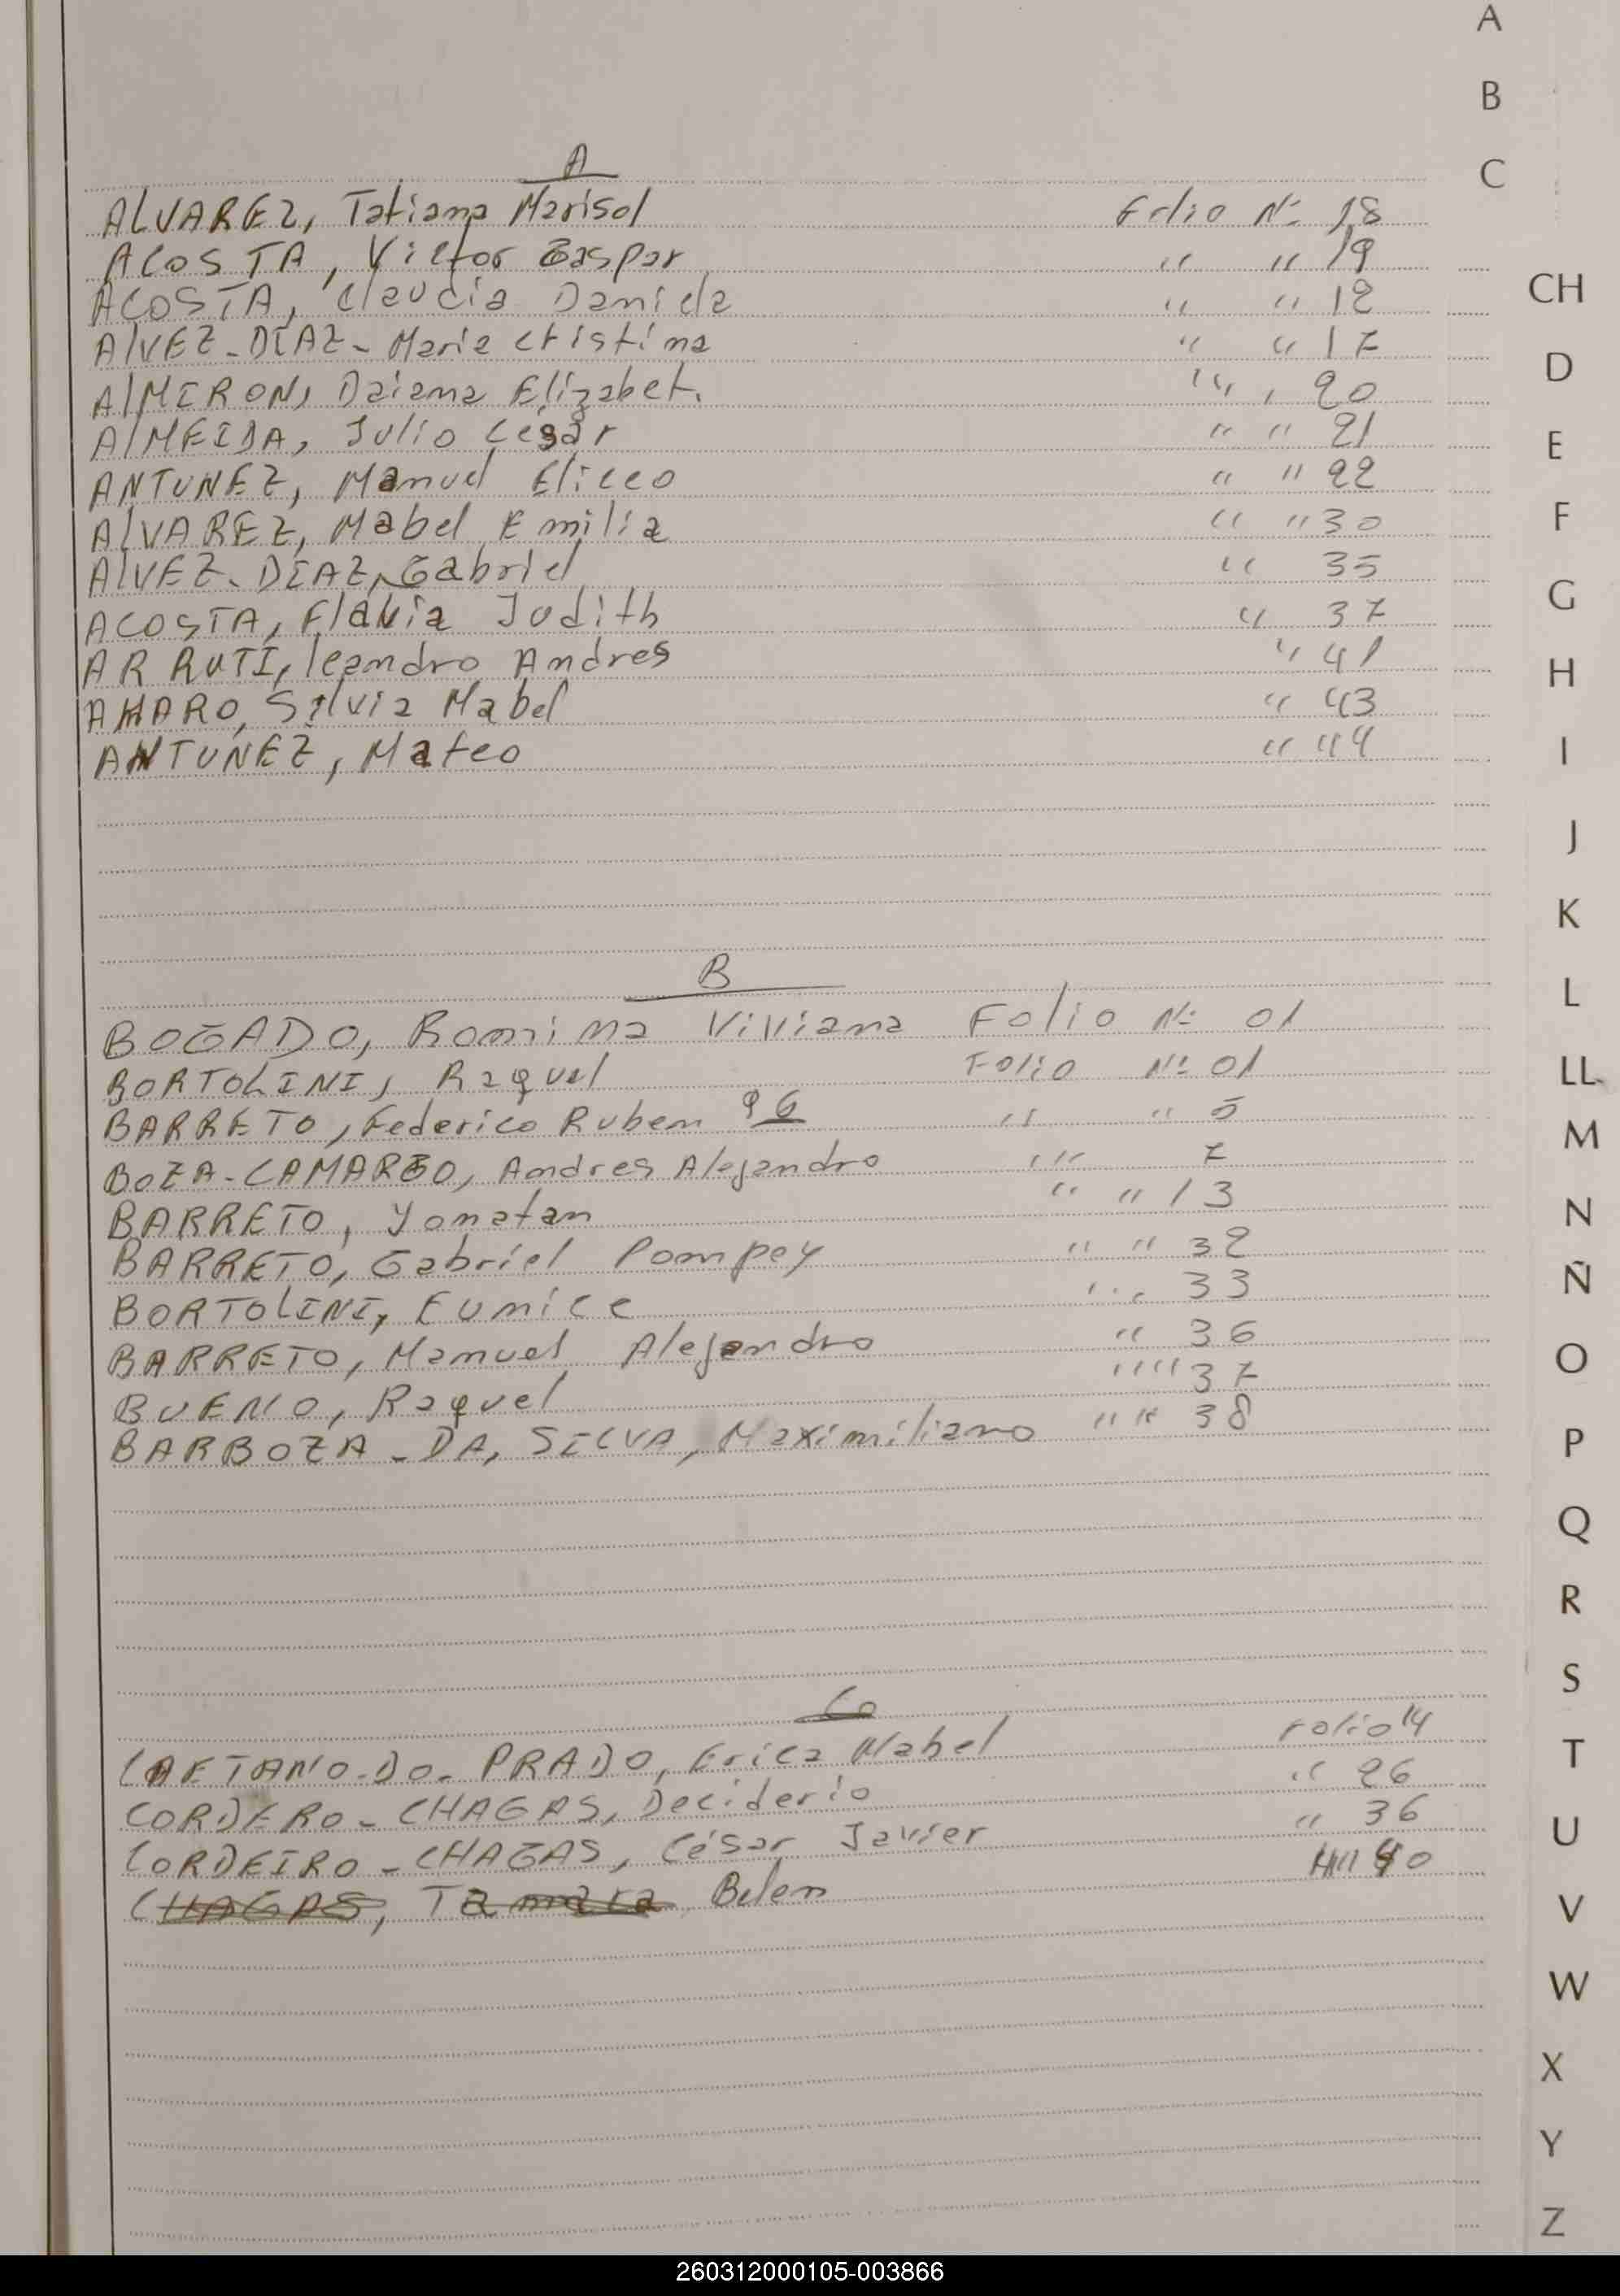 A
ALVAREZ, Tatiana Marisol Folio Nº 18
ACOSTA, Victor Gaspar " " 19
ACOSTA, Claudia Daniela " " 18
AlVEZ-DIAZ- Maria Cristina " " 17
AlMIRON, Daiana Elizabet. " " 20
AlMEIDA, Julio César " " 21
ANTUNEZ, Manuel Eliceo " " 22
AlVAREZ, Mabel Emilia " " 30
AlVEZ-DIAZ, Gabriel " 35
ACOSTA, Flavia Judith " 37
ARRUTI, leandro Andres " 41
AMARO, Silvia Mabel " 43
ANTUNEZ, Mateo " 44
B
BOGADO, Romina Viviana Folio Nº 01
BORTOLINI, Raquel Folio Nº 01
BARRETO, Federico Ruben 96 " " 5
BOZA-CAMARGO, Andres Alejandro " 7
BARRETO, Yonatan " " 13
BARRETO, Gabriel Pompey " " 32
BORTOLINI, Eunice " 33
BARRETO, Manuel Alejandro " 36
BUENO, Raquel " " 37
BARBOZA-DA, SILVA, Maximiliano " " 38
CAETANO-DO-PRADO, Erica Mabel Folio 14
CORDERO-CHAGAS, Deciderio " 26
CORDEIRO-CHAGAS, César Javier " 36
CHAGAS, Tamara Belen " 40
A
B
C
CH
D
E
F
G
H
I
J
K
L
LL
M
N
Ñ
O
P
Q
R
S
T
U
V
W
X
Y
Z
260312000105-003866